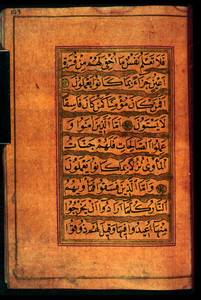 فَلَا تَعْلَمُ نَفْسٌ مَا أُخْفِيَ لَهُمْ مِنْ قُرَّةِ
أَعْيُنٍ جَزَاءً بِمَا كَانُوا يَعْمَلُونَ
أَفَمَنْ كَانَ مُؤْمِنًا كَمَنْ كَانَ فَاسِقًا
لَا يَسْتَوُونَ أَمَّا الَّذِينَ آمَنُوا وَ
عَمِلُوا الصَّالِحَاتِ فَلَهُمْ جَنَّاتُ
الْمَأْوَى نُزُلًا بِمَا كَانُوا يَعْمَلُونَ
وَأَمَّا الَّذِينَ فَسَقُوا فَمَأْوَاهُمُ
النَّارُ كُلَّمَا أَرَادُوا أَنْ يَخْرُجُوا
مِنْهَا أُعِيدُوا فِيهَا وَقِيلَ لَهُمْ ذُوقُوا